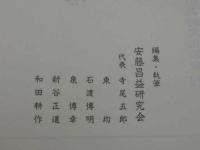 編集・執筆
安藤昌益研究会
代表 寺尾五郎
東均
石渡博明
泉博幸
新谷正道
和田耕作